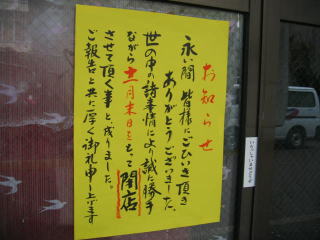 お知らせ
永い間 皆様にごひいき頂き
ありがとうございました。
世の中の諸事情により誠に勝手
ながら十二月末日をもって閉店
させて頂く事と成りました。
ご報告と共に厚く御礼申し上げます